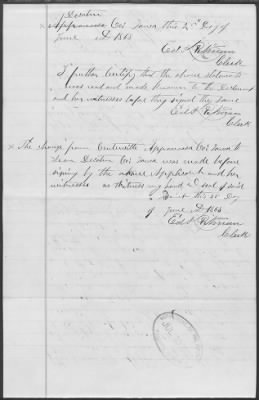 Decatur
Appanoose Co Iowa this 25th Day of
June AD 1863
Clerk
I further Certify that the above statements
were read and made Known to the Declarant
and her witnesses before they signed the same
Clerk
x The change from Centerville Appanoose Co Iowa to
Leon Decatur Co Iowa was made before
signing by the above Applicant and her
witnesses as witness my hand and seal of said
Court this 25 Day
of June AD 1863
Clerk